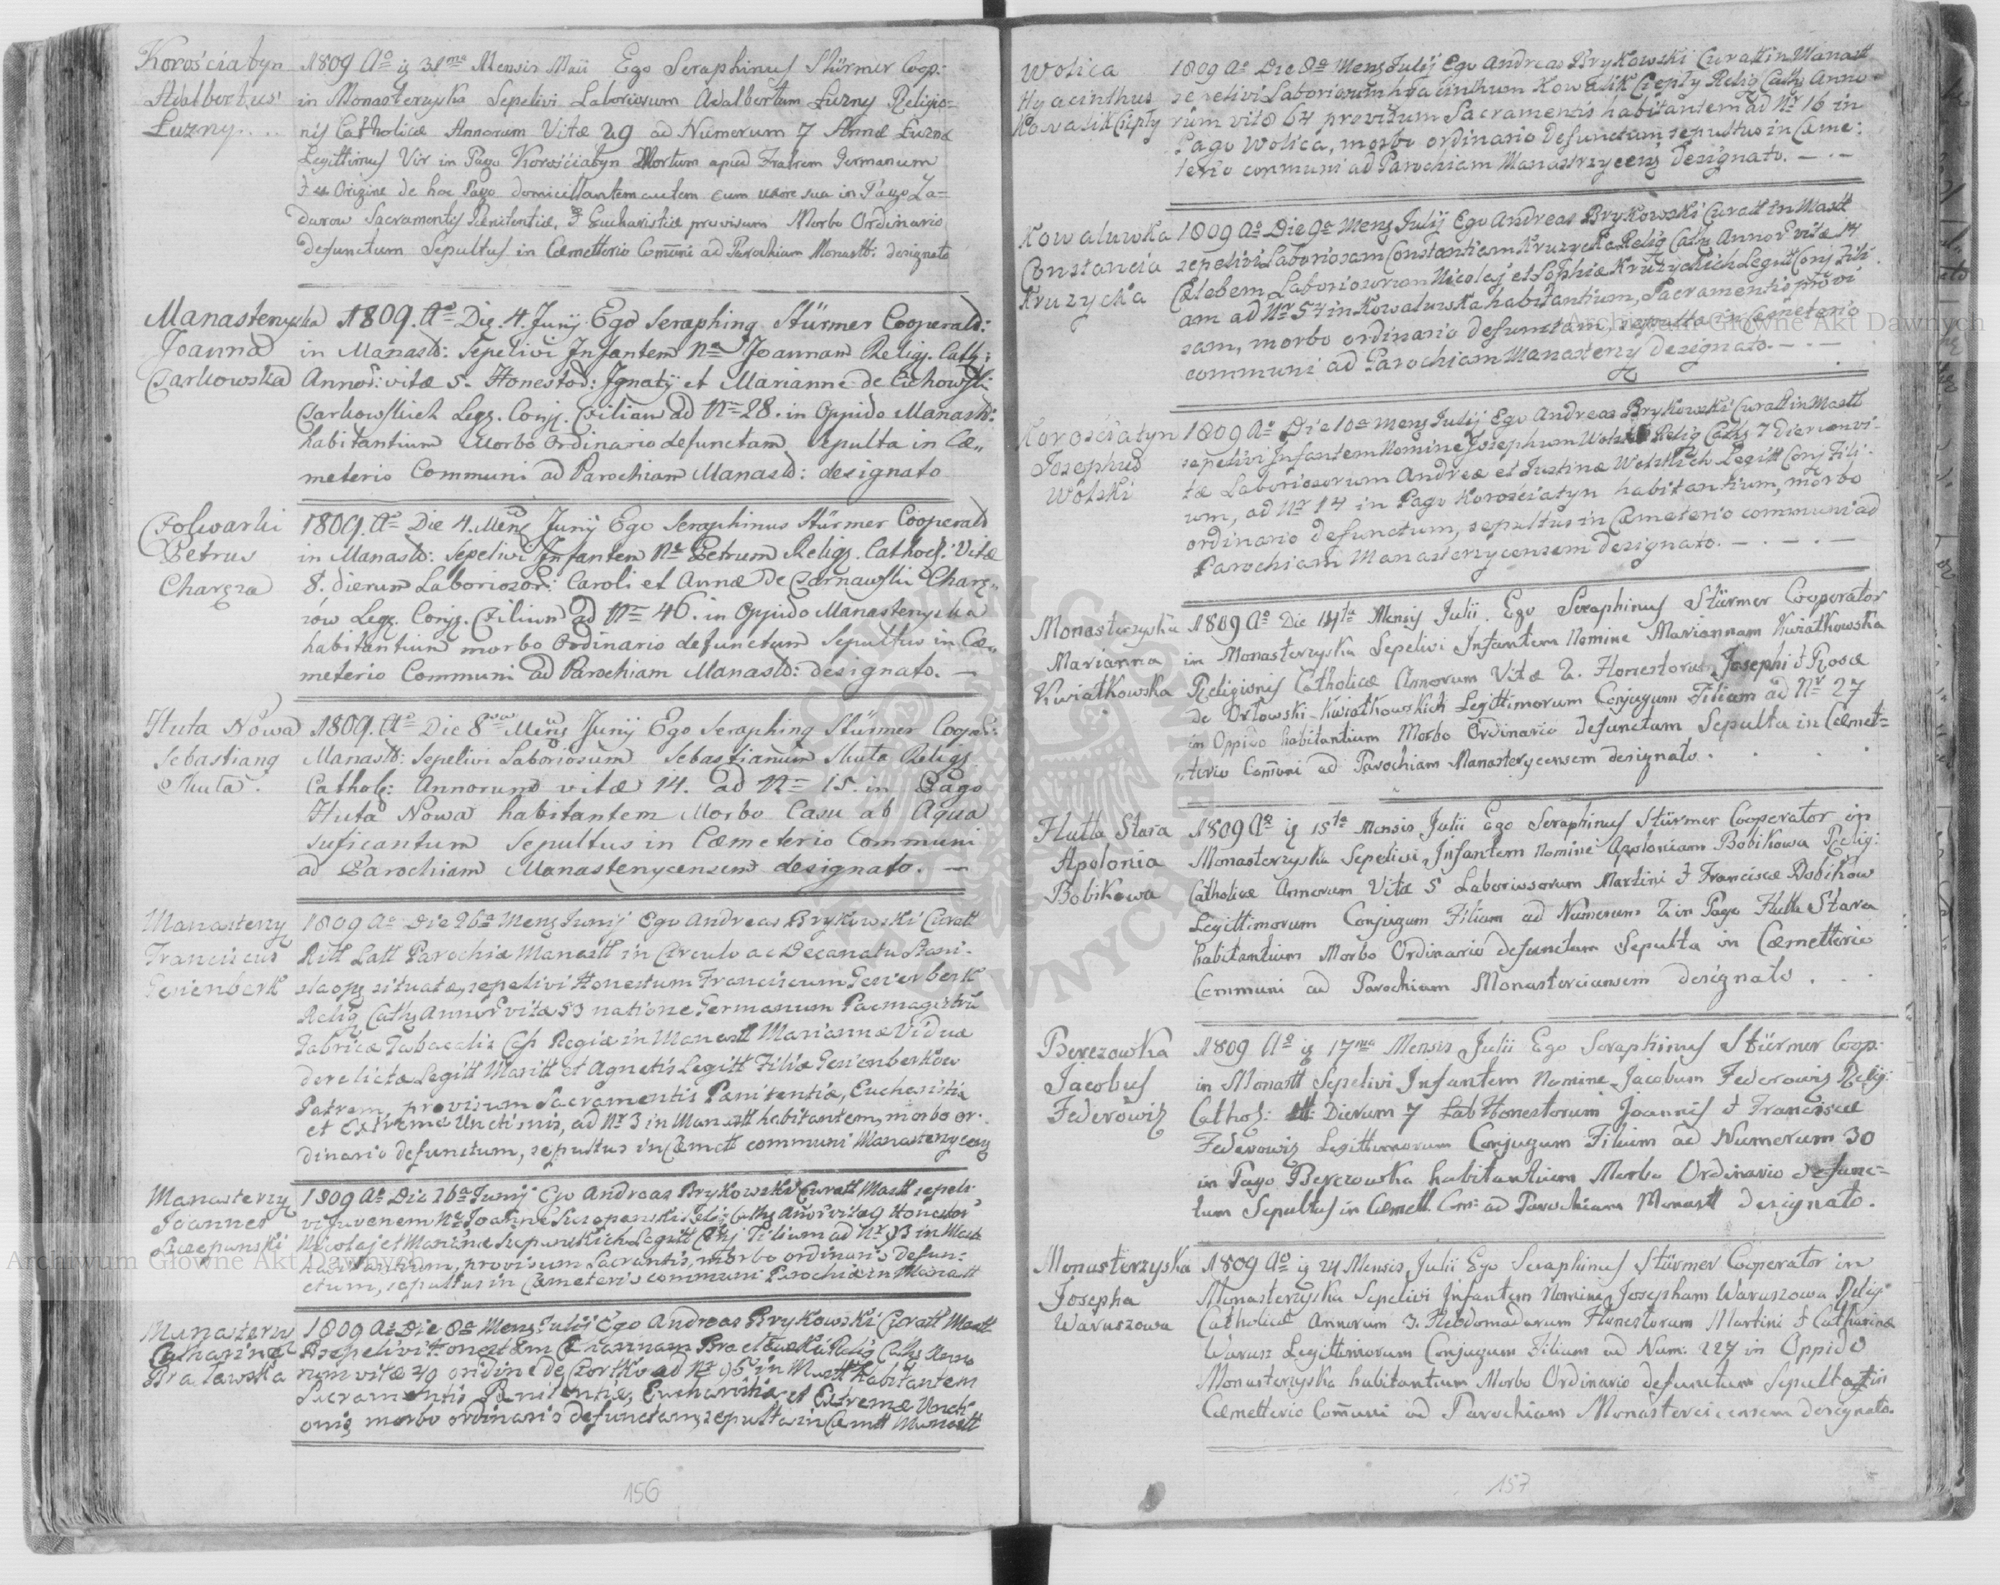 Korościatyn
Adalbertus
Łuzny
1809 Aº ig 31ma Mensis Maii Ego Seraphinus Stürmer Coop:
in Monasterzyska Sepelivi Laboriosum Adalbertum Łuzny Religio=
nis Catholicæ Annorum Vitæ 29 ad Numerum 7 Annæ Łuzna
Legittimus Vir in Pago Korościatyn Mortum apud Fratrem Germanum
Origine de hoc Pago domicillantem autem cum uxore sua in Pago Za=
darow Sacramentis Penitentiæ, & Eucharistiæ provisum Morbo Ordinario
defunctum Sepultus in Cæmetterio Com̄uni ad Parochiam Monastt: designato
Manasterzyska
Joanna
Czarkowska
1809. Aº Die 4. Junij Ego Seraphing Stürmer Cooperat:
in Manast: Sepelivi Infantem Ne Joannam Relig. Cath:
Annor: vitæ 5. Honestor: Ignatij et Marianne de Cichowski
Czarkowskich Leg. Conj. Filiam ad Nr 28. in Oppido Manast:
habitantium Morbo Ordinario defunctam sepulta in Cæ=
meterio Communi ad Parochiam Manast: designato
Folwarki
Petrus
Charęza
1809. Aº Die 4. Mens Junij Ego Seraphinus Stürmer Cooperat
in Manast: Sepelivi Infantem Ne Petrum Relig. Cathol: Vitæ
8. dierum Laboriozor: Caroli et Annæ De Czarnawski Charę=
zow Leg. Conj. Filium ad Nr 46. in Oppido Manasterzycka
habitantium morbo Ordinario defunctum Sepultus in Cæ=
meterio Communi ad Parochiam Manast: designato. —
Huta Nowa
Sebastiang
Skuta.
1809. Aº Die 8va Mens Junij Ego Seraphing Stürmer Coop:
Manast: Sepelivi Laboriosum Sebastianum Skuta Relig.
Cathol: Annorum vitæ 14. ad Nr 15. in Pago
Huta Nowa habitantem Morbo Casu ab Aqua
suficantum Sepultus in Cæmeterio Communi
ad Parochiam Manasterzycensem designato. —
Manasterzy
Franciscus
Geienberk
1809 Aº Die 26a Mens Junij Ego Andreas Brykowski Curatt
Ritt Latt Parochiæ Manastt in Circulo ac Decanatu Stani=
slaopg situatæ, sepelivi Honestum Franciscum Geienberk
Relig Cathg Annor vitæ 53 natione Germanum Pacmagistrū
Fabricæ Tabacalis Regiæ in Manastt Mariannæ Vidua
derelictæ Legitt Maritt et Agnetis Legitt Filiæ Geienberkow
Patrem, provisum Sacramentis Pænitentiæ, Eucharistiæ
et Extremæ Unctionis, ad Nr 3 in Manastt habitantem, morbo or=
dinario defunctum, sepultus in Cæmett communi Manasterzycens
Manasterzy
Joannes
Szczepanski
1809 Aº Die 26a Junij Ego Andreas Brykowski Curatt Mastt sepeli=
vi Juvenem Ne Joannē Szczepanski Relig: Cathg Annor vitæ 9 Honestor
Nicolaj et Mariæ Szczepanskich Legitt Conj Filium ad Nr 93 in Mastt
habitantium, provisum Sacrantis, morbo ordinario defun=
ctum, sepultus in Cæmeterio communi Parochiæ in Manastt
Manasterzy
Catharinæ
Bratawska
1809 Aº Die 8a Mens Julij Ego Andreas Brykowski Curatt Mastt
sepelivi Honestam
rum vitæ 40 oridine de Czortkow ad Nr 96 in Mastt habitantem
Sacramentis Pænitentiæ, Eucharistiæ et Extremæ Uncti
onis, morbo ordinario defunctam, sepulta in Cæmett Manastt
156
Wolica
Hyacinthus
Kowalik Ciepły
1809 Aº Die 8a Mens Julij Ego Andreas Brykowski Curatt in Manastt
sepelivi Laboriosum Hyacinthum Kowalik Ciepły Relig Cathg Anno=
rum vitæ 64 provisum Sacramentis habitantem ad Nr 16 in
Pago Wolica, morbo ordinario defunctum, sepultus in Cæme=
terio communi ad Parochiam Manastrzycens designato. — . —
Kowaluwka
Constancia
Kruzycka
1809 Aº Die 9a Mens Julij Ego Andreas Brykowski Curatt in Mastt
sepelivi Laboriosam Constantiam Kruzycka Relig Cathg Annor vitæ 14
Cælebem Laboriosorum Nicolaj et Sophiæ Kruzyckich Legitt Conj Fili=
am ad Nr 54 in Kowaluwka habitantium, Sacramentis provi
sam, morbo ordinario defunctam, sepulta in Cæmeterio
communi ad Parochiam Manasterzy designato. — . —
Korościatyn
Josephus
Wolski
1809 Aº Die 10a Mens Julij Ego Andreas Brykowski Curatt in Mastt
sepelivi Infantem Nomine Josephum Wolski Relig Cathg 7 Dierum vi=
tæ Laboriosorum Andreæ et Justinæ Wolskich Legitt Conj Fili=
um, ad Nr 14 in Pago Korościatyn habitantium, morbo
ordinario defunctum, sepultus in Cæmeterio communi ad
Parochiam Manasterzycensem designato. — . — . —
Monasterzyska
Marianna
Kwiatkowska
1809 Aº Die 14ta Mensis Julii. Ego Seraphinus Stürmer Cooperator
in Monasterzyska Sepelivi Infantem Nomine Mariannam Kwiatkowska
Religionis Catholicæ Annorum Vitæ 2. Honestorum Josephi & Rosæ
de Orłowski Kwiatkowskich Legittimorum Conjugum Filiam ad Nr 27
in Oppido habitantium Morbo Ordinario defunctam Sepulta in Cæmet=
terio Com̄uni ad Parochiam Manasterycensem designato.
Hutta Stara
Apolonia
Bobikowa
1809 Aº ig 15ta Mensis Julii Ego Seraphinus Stürmer Cooperator in
Monasterzyska Sepelivi Infantem Nomine Apoloniam Bobikowa Relig:
Catholicæ Annorum Vitæ 5 Laboriosorum Martini & Franciscæ Bobikow
Legittimorum Conjugum Filiam ad Numerum 2 in Pago Hutta Stara
habitantium Morbo Ordinario defunctam Sepulta in Cæmetterio
Communi ad Parochiam Monasterciensem designato.
Berezowka
Jacobus
Federowiz
1809 Aº ig 17ma Mensis Julii Ego Seraphinus Stürmer Coop:
in Monastt Sepelivi Infantem Nomine Jacobum Federowiz Relig:
Cathol: Dierum 7 Honestorum Joannis & Franciscæ
Federowiz Legittimorum Conjugum Filium ad Numerum 30
in Pago Berezowka habitantium Morbo Ordinario defunc=
tum Sepultus in Cæmett. Cm: ad Parochiam Monastt designato.
Monasterzyska
Josepha
Waruszowa
1809 Aº ig 24 Mensis Julii Ego Seraphinus Stürmer Cooperator in
Monasterzyska Sepelivi Infantem Nomine Josepham Waruszowa Relig:
Catholicæ Annorum 3. Hebdomadarum Honestorum Martini & Catharinæ
Warusz Legittimorum Conjugum Filiam ad Num: 227 in Oppido
Monasterzyska habitantium Morbo Ordinario defunctam Sepulta in
Cæmetterio Com̄uni ad Parochiam Monastercicensem designato.
157
Archiwum Główne Akt Dawnych
Archiwum Główne Akt Dawnych